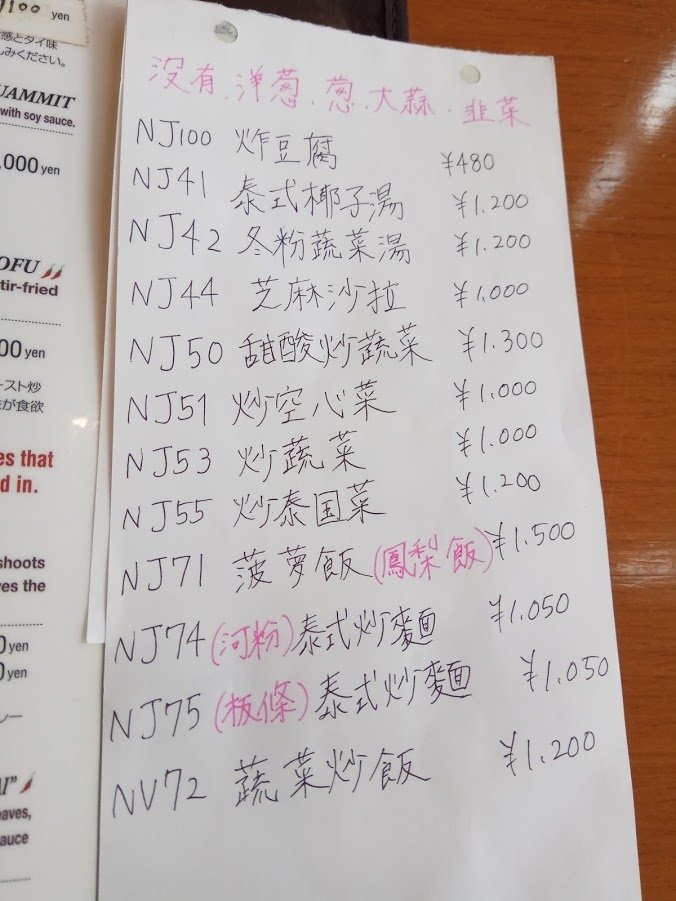 1100 yen
感とタイ味
しみください。
UAMMIT
with soy sauce.
,000 yen
OFU
tir-fried
00 yen
ースト炒
が食欲
es that
d in.
shoots
ves the
0 yen
0 yen
レー
AI"
eaves,
sauce
没有、洋葱、葱、大蒜、韭菜
NJ100 炸豆腐 ¥480
NJ41 泰式椰子湯 ¥1.200
NJ42 冬粉蔬菜湯 ¥1.200
NJ44 芝麻沙拉 ¥1.000
NJ50 甜酸炒蔬菜 ¥1.300
NJ51 炒空心菜 ¥1.000
NJ53 炒蔬菜 ¥1.000
NJ55 炒泰国菜 ¥1.200
NJ71 菠萝飯(鳳梨飯) ¥1.500
NJ74 (河粉)泰式炒麵 ¥1.050
NJ75 (板條)泰式炒麵 ¥1.050
NV72 蔬菜炒飯 ¥1.200